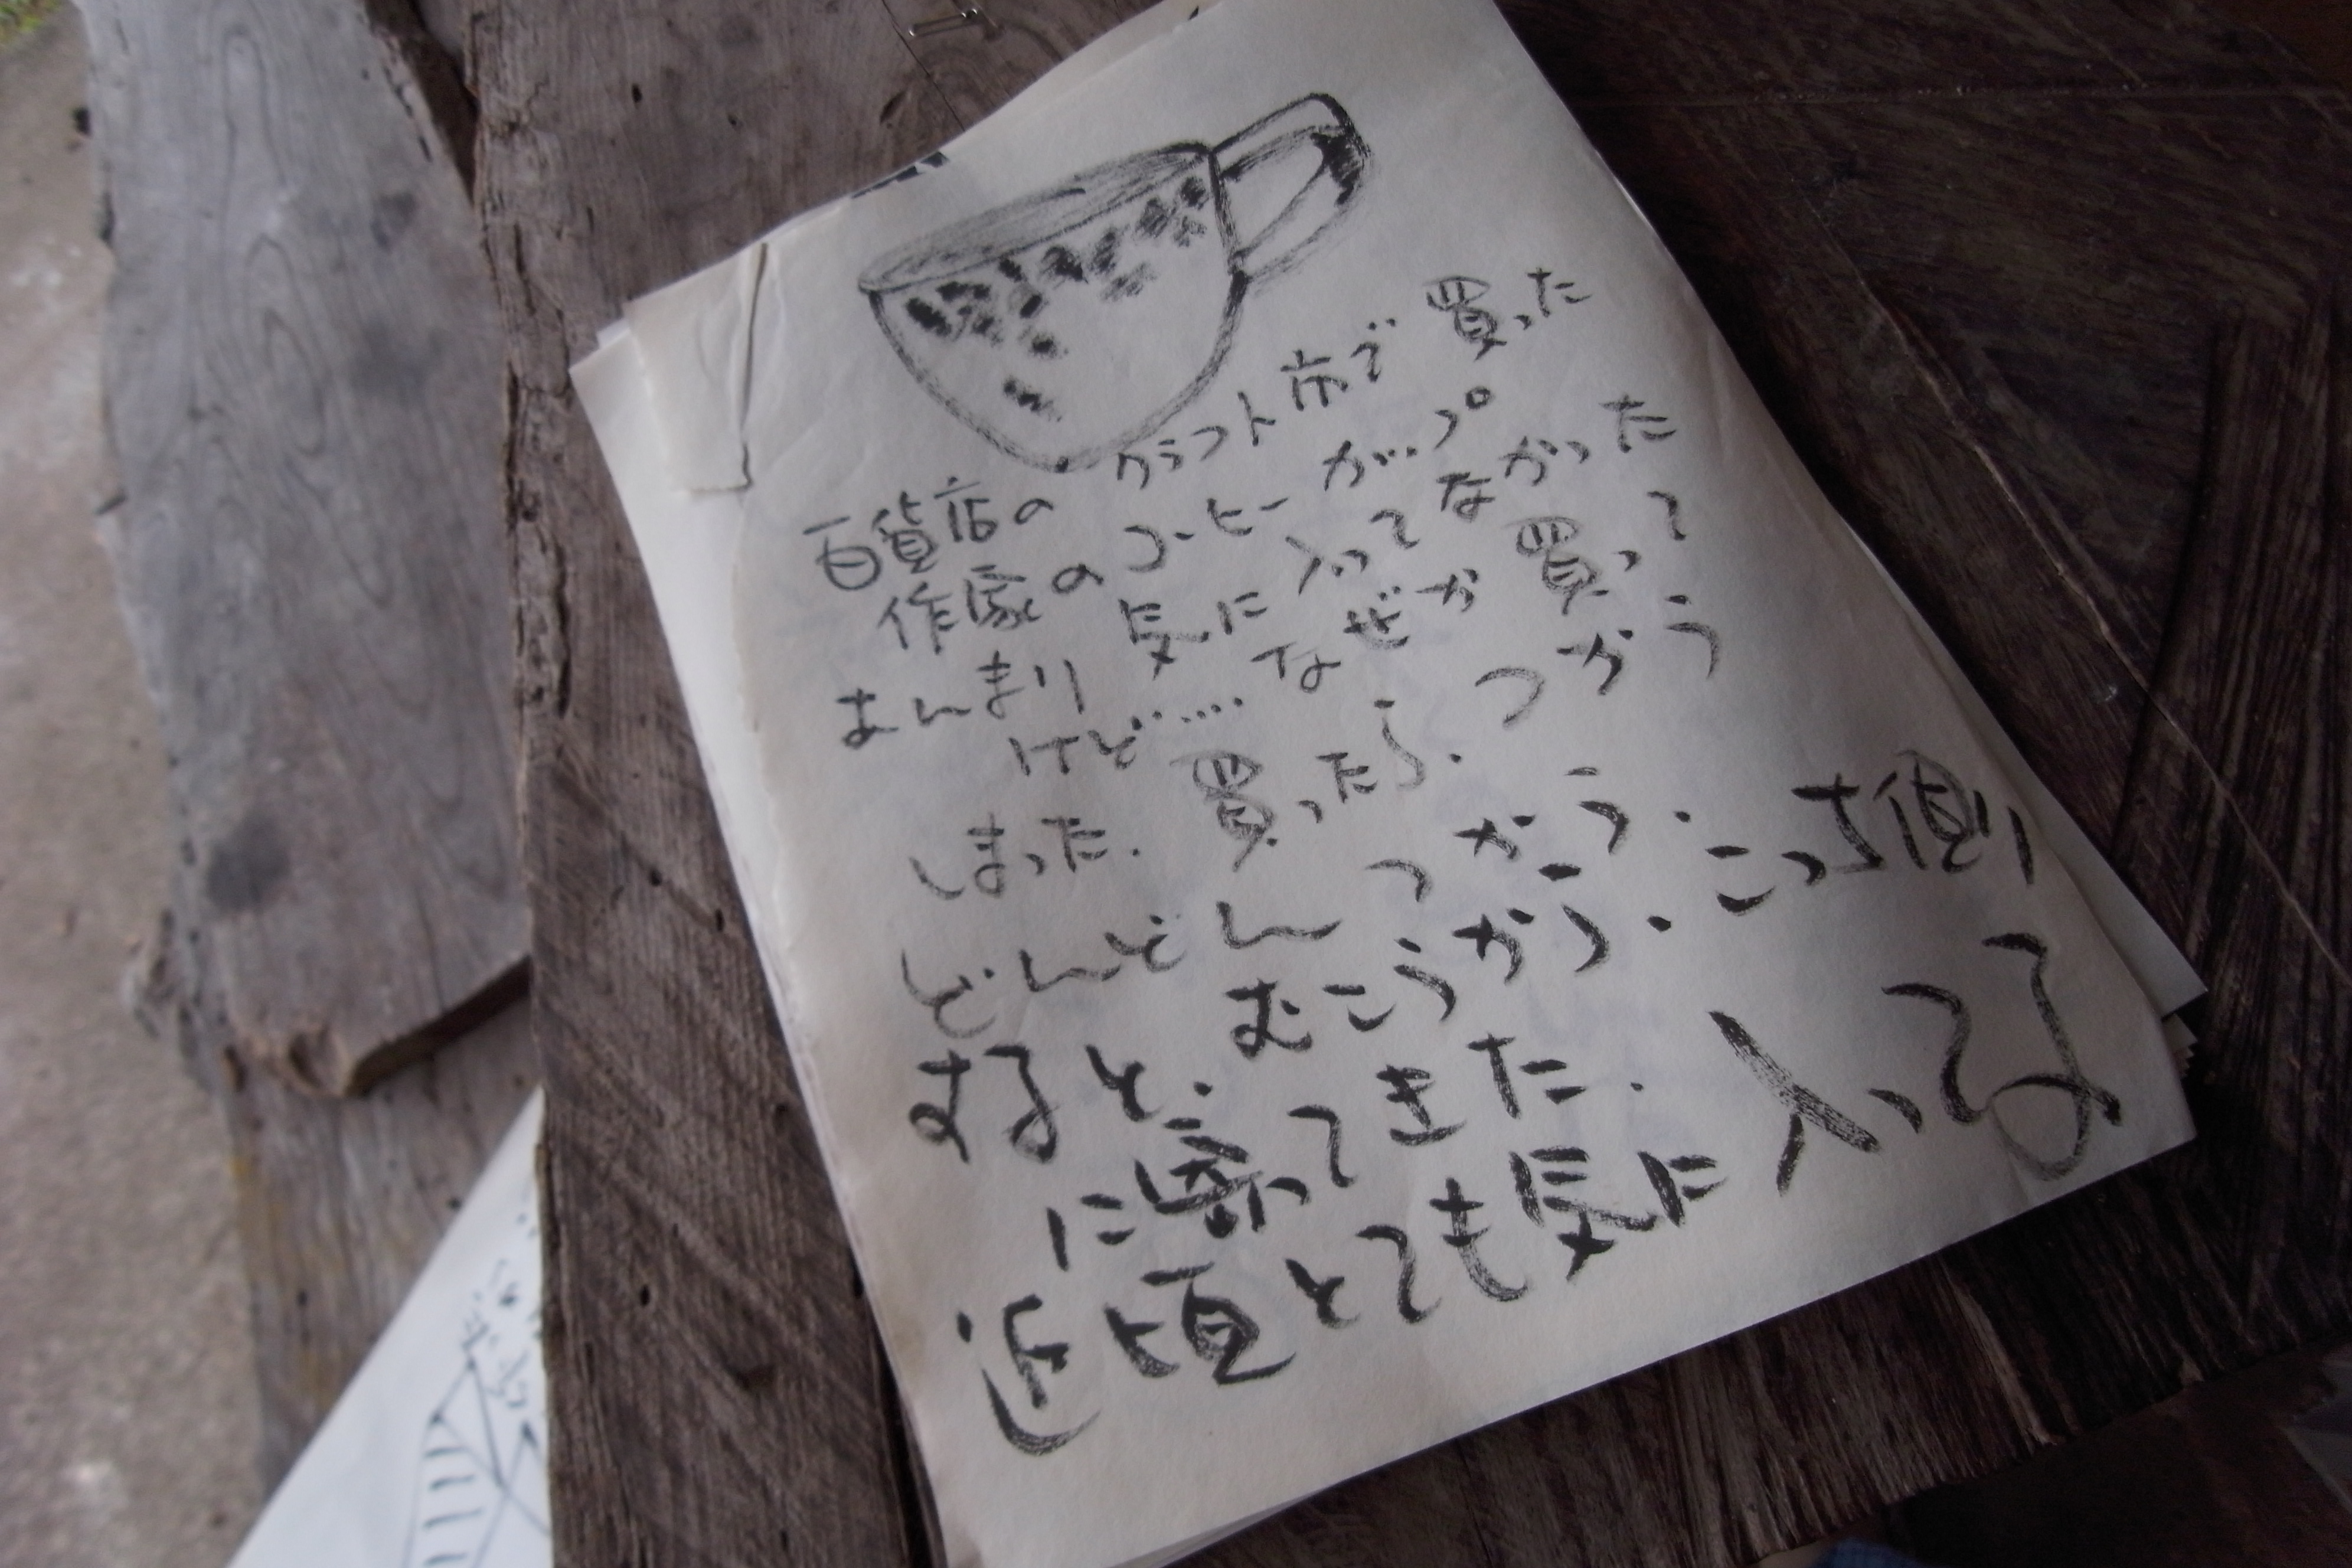 百貨店のクラフト市で買った
作家のコーヒーがップ
あんまり気に入ってなかった
けど……なぜか買って
しまった.買ったら.つかう
どんどんつかう.
すると.むこうから.こっち側
に寄ってきた.
近頃とても気に入ってる